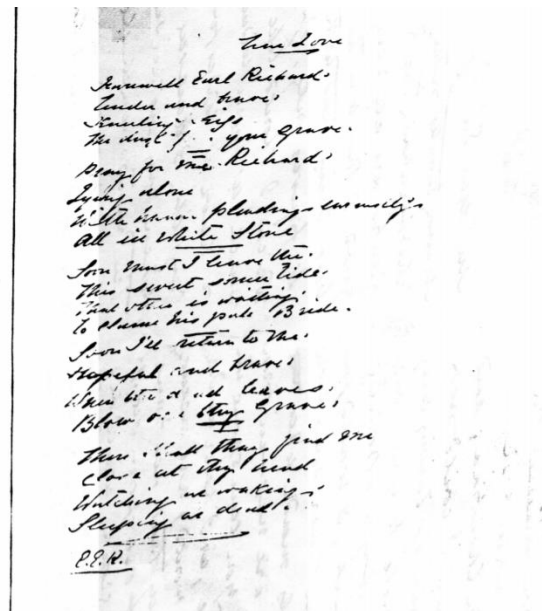 True Love
Farewell Earl Richard.
Tender and brave.
Kneeling I kiss
The dust of your grave.
Pray for me Richard.
Lying alone
With hands pleading earnestly.
All in white Stone
Soon must I leave the.
This sweet somer tide.
That other is waiting.
To clame his pale Bride.
Soon I'll return to the.
Hopeful and brave.
When the dead leaves.
Blow o'er thy Grave.
Then shall they find me
Close at thy head
Watching or waking.
Sleeping or dead.
E.E.R.